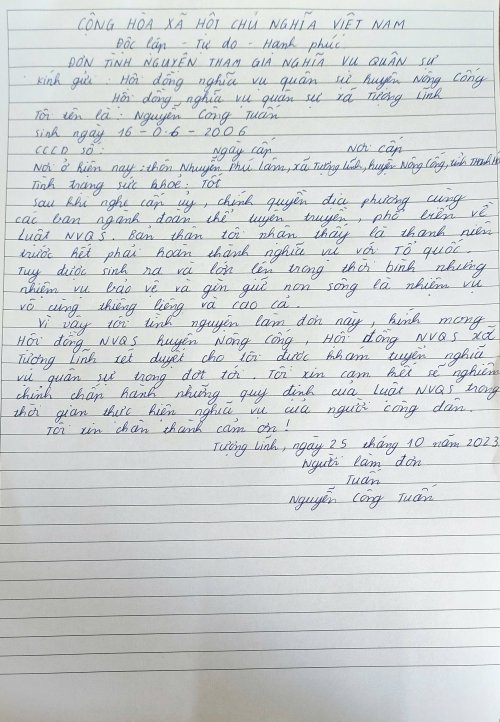 CỘNG HÒA XÃ HỘI CHỦ NGHĨA VIỆT NAM
Độc lập - Tự do - Hạnh phúc
ĐƠN TÌNH NGUYỆN THAM GIA NGHĨA VỤ QUÂN SỰ
Kính gửi: Hội đồng nghĩa vụ quân sự huyện Nông Cống
Hội đồng nghĩa vụ quân sự xã Tượng Lĩnh
Tôi tên là: Nguyễn Công Tuấn
Sinh ngày 16-06-2006
CCCD số: Ngày cấp Nơi cấp
Nơi ở hiện nay: thôn Nhuyễn Phú Lâm, xã Tượng Lĩnh, huyện Nông Cống, tỉnh Thanh Hóa
Tình trạng sức khoẻ: Tốt
Sau khi nghe cấp uỷ, chính quyền địa phương cùng
các ban ngành đoàn thể tuyên truyền, phổ biến về
Luật NVQS. Bản thân tôi nhận thấy là thanh niên
trước hết phải hoàn thành nghĩa vụ với Tổ quốc.
Tuy được sinh ra và lớn lên trong thời bình nhưng
nhiệm vụ bảo vệ và gìn giữ non sông là nhiệm vụ
vô cùng thiêng liêng và cao cả.
Vì vậy tôi tình nguyện làm đơn này, kính mong
Hội đồng NVQS huyện Nông Cống, Hội đồng NVQS xã
Tượng Lĩnh xét duyệt cho tôi được khám tuyển nghĩa
vụ quân sự trong đợt tới. Tôi xin cam kết sẽ nghiêm
chỉnh chấp hành những quy định của Luật NVQS trong
thời gian thực hiện nghĩa vụ của người công dân.
Tôi xin chân thành cảm ơn!
Tượng Lĩnh, ngày 25 tháng 10 năm 2023
Người làm đơn
Tuấn
Nguyễn Công Tuấn